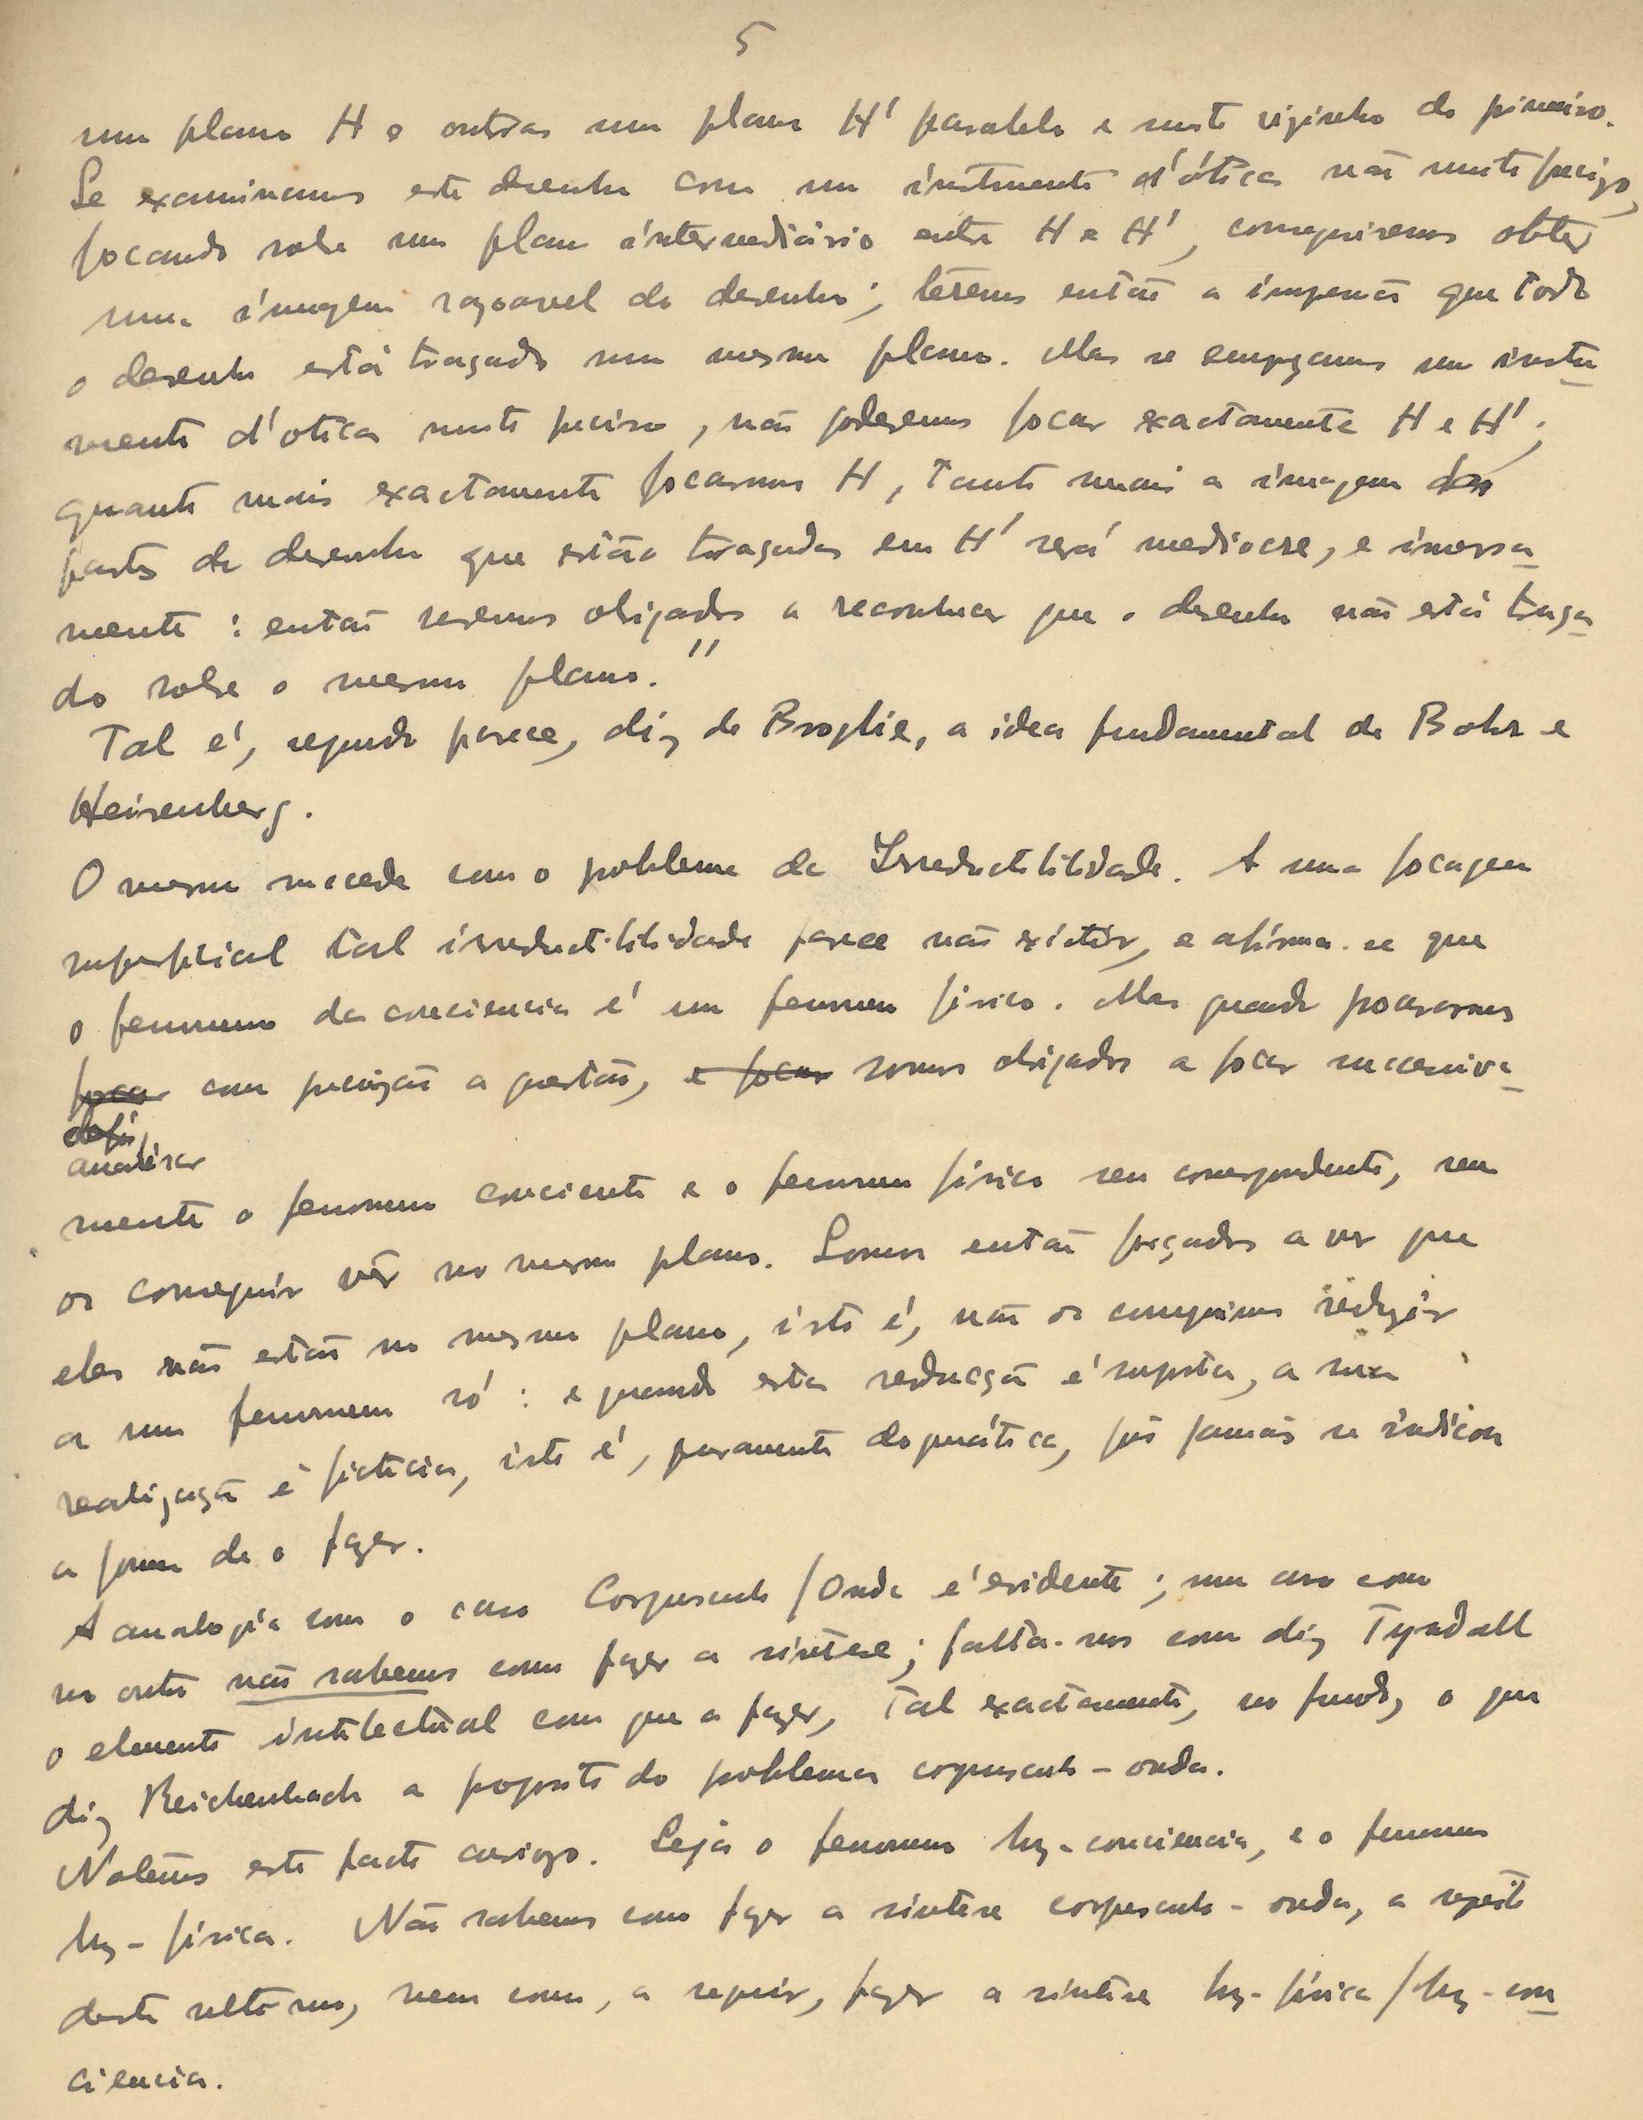 5
num plano H e outras num plano H' paralelo e muito vizinho do primeiro.
Se examinamos este desenho com um instrumento d'ótica não muito preciso,
focando sobre um plano intermediário entre H e H', conseguiremos obter
uma imagem razoavel do desenho; teremos então a impressão que todo
o desenho está traçado num mesmo plano. Mas se empregamos um instru-
mento d'otica muito preciso, não poderemos focar exactamente H e H';
quanto mais exactamente focarmos H, tanto mais a imagem das
partes do desenho que estão traçadas em H' será mediocre, e inversa-
mente: então seremos obrigados a reconhecer que o desenho não está traça-
do sobre o mesmo plano."
Tal é, segundo parece, diz de Broglie, a idea fundamental de Bohr e
Heisenberg.
O mesmo sucede com o problema da Irreductibilidade. A uma focagem
superficial tal irreductibilidade parece não existir, e afirma-se que
o fenomeno da conciencia é um fenomeno fisico. Mas quando procuramos
focar com precizão a questão, e focar somos obrigados a focar successiva-
defi
analisar
mente o fenomeno conciente e o fenomeno físico seu correspondente, sem
os conseguir vêr no mesmo plano. Somos então forçados a ver que
eles não estão no mesmo plano, isto é, não os conseguimos reduzir
a um fenomeno só: e quando esta reducção é suposta, a sua
realização é ficticia, isto é, puramente dogmática, pois jamais se indicou
a forma de o fazer.
A analogia com o caso Corpusculo/Onda é evidente; num caso como
no outro não sabemos como fazer a sintese; falta-nos como diz Tyndall
o elemento intelectual com que a fazer, tal exactamente, no fundo, o que
diz Reichenbach a proposito do problema corpusculo-onda.
Notemos este facto curiozo. Seja o fenomeno luz-conciencia, e o fenomeno
luz-física. Não sabemos como fazer a sintese corpusculo-onda, a respeito
deste ultimo, nem como, a seguir, fazer a sintese luz-física/luz-con-
ciencia.